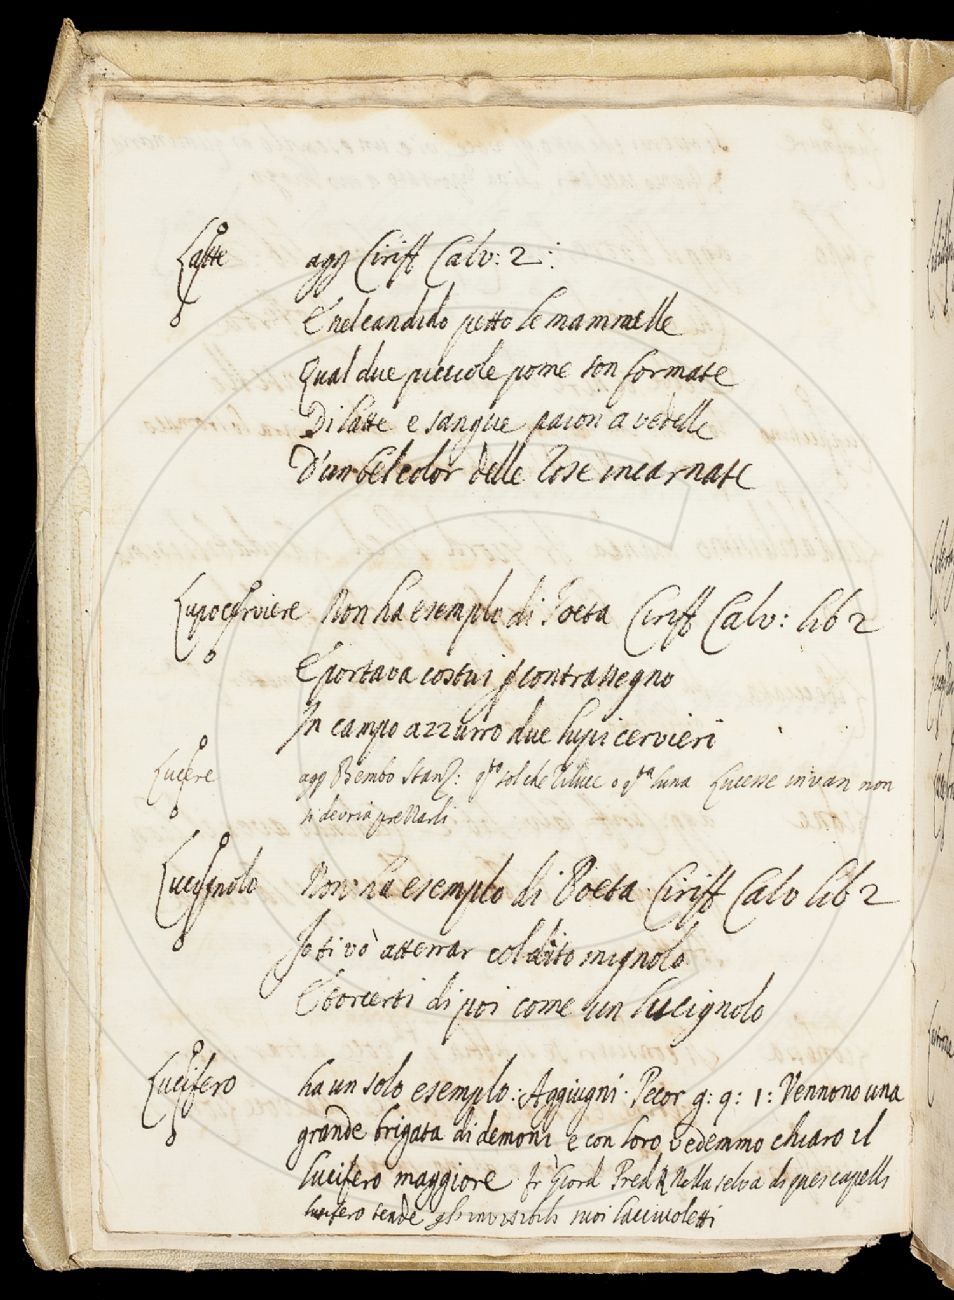 Latte agg Ciriff Calv: 2:
E nel candido petto le mammelle
Qual due picciole pome son formate
Di latte e sangue paion a vedelle
D'un bel color delle rose incarnate
Lupocerviere Non ha esemplo di Poeta Ciriff Calv: lib 2
E portava costui p contrassegno
In campo azzurro due lupi cervieri
Lucere agg Bembo Stanz: qto sol che riluce o qta luna Lucesse in van non
si devria prezzarli
Lucignolo Non ha esemplo di Poeta Ciriff Calv lib 2
Io ti vò atterrar col dito mignolo
E torcerti di poi come un lucignolo
Lucifero ha un solo esemplo: Aggiugni. Pecor g: 9: 1: Vennono una
grande brigata di demoni e con loro vedemmo chiaro il
lucifero maggiore fr Giord Pred R Nella selva di quei capelli
lucifero tende gl'invisibili suoi lacciuoletti